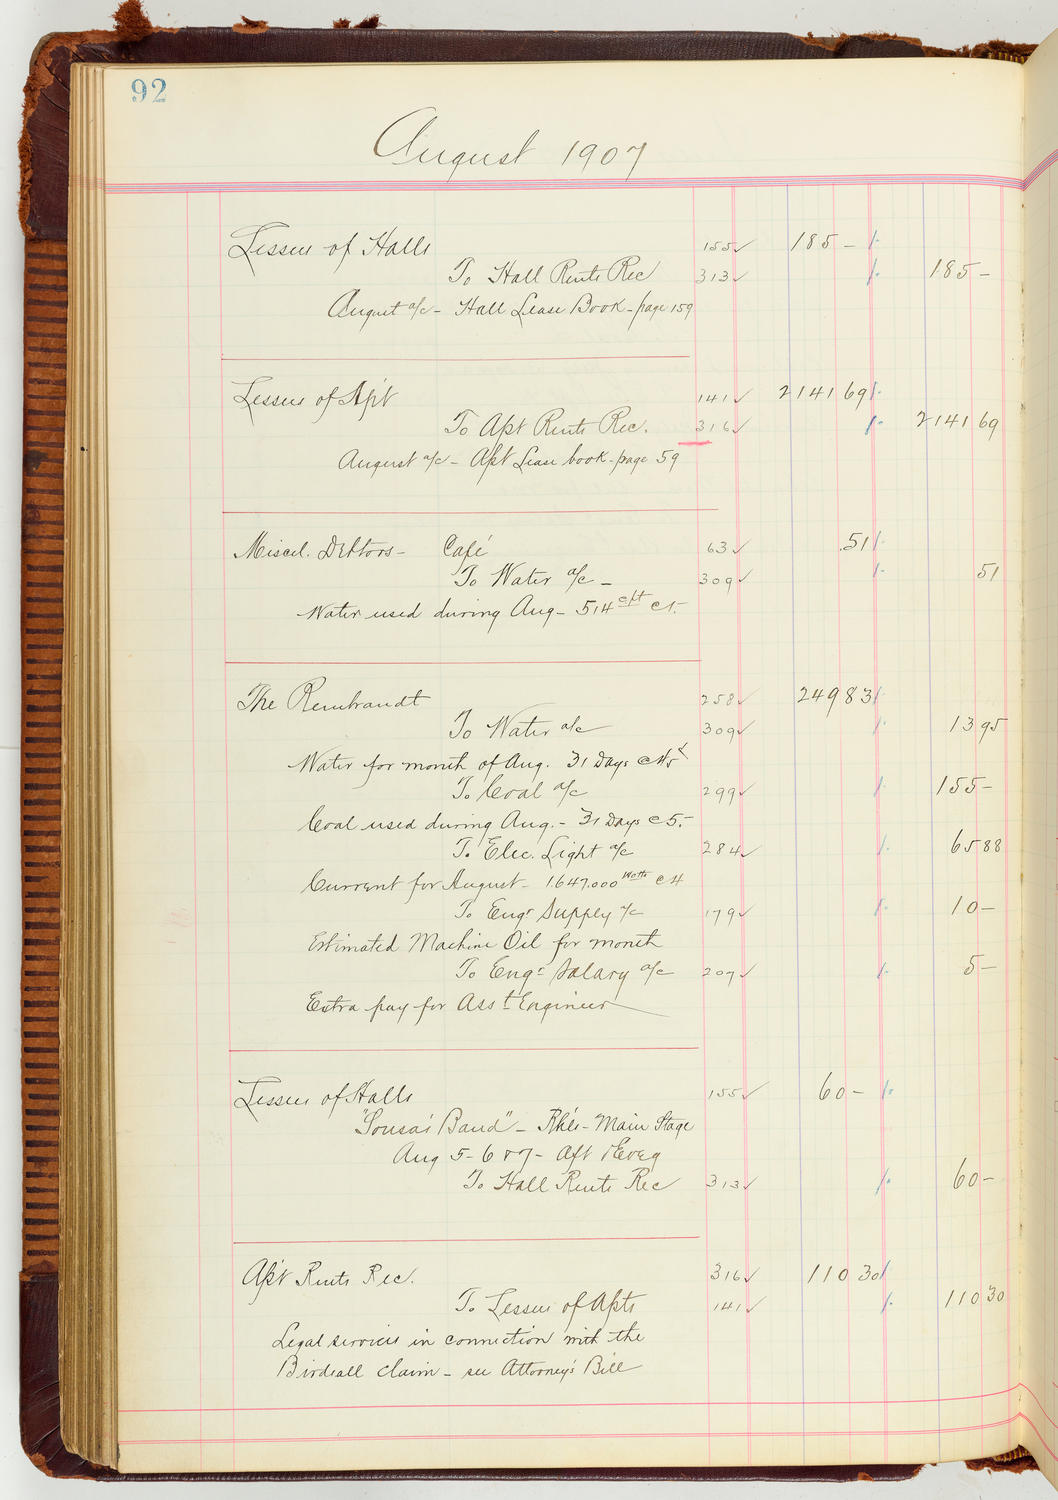 92
August 1907
Lessees of Halls 155 ✓ 185 –
To Hall Rents Rec 313 ✓ 185 –
August a/c – Hall Lease Book – page 159
Lessees of Apt 141 ✓ 2141 69
To Apt Rents Rec. 316 ✓ 2141 69
August a/c – Apt Lease book – page 59
Miscel. Debtors – Café 63 ✓ .51
To Water a/c – 309 ✓ 51
Water used during Aug – 514 cft @ 1.–
The Rembrandt 258 ✓ 249 83
To Water a/c 309 ✓ 13 95
Water for month of Aug. 31 Days @ 45
To Coal a/c 299 ✓ 155 –
Coal used during Aug. – 31 Days @ 5.–
To Elec. Light a/c 284 ✓ 65 88
Current for August – 1.647.000 Watts @ 4
To Engr Supply a/c 179 ✓ 10 –
Estimated Machine Oil for month
To Engr Salary a/c 207 ✓ 5 –
Extra pay for Asst Engineer
Lessees of Halls 155 ✓ 60 –
"Sousa's Band" – Rh'ls – Main Stage
Aug 5 – 6 & 7 – Aft & Eve'g
To Hall Rents Rec 313 ✓ 60 –
Ap't Rents Rec. 316 ✓ 110 30
To Lessees of Apts 141 ✓ 110 30
Legal services in connection with the
Birdsall claim – see Attorney's Bill